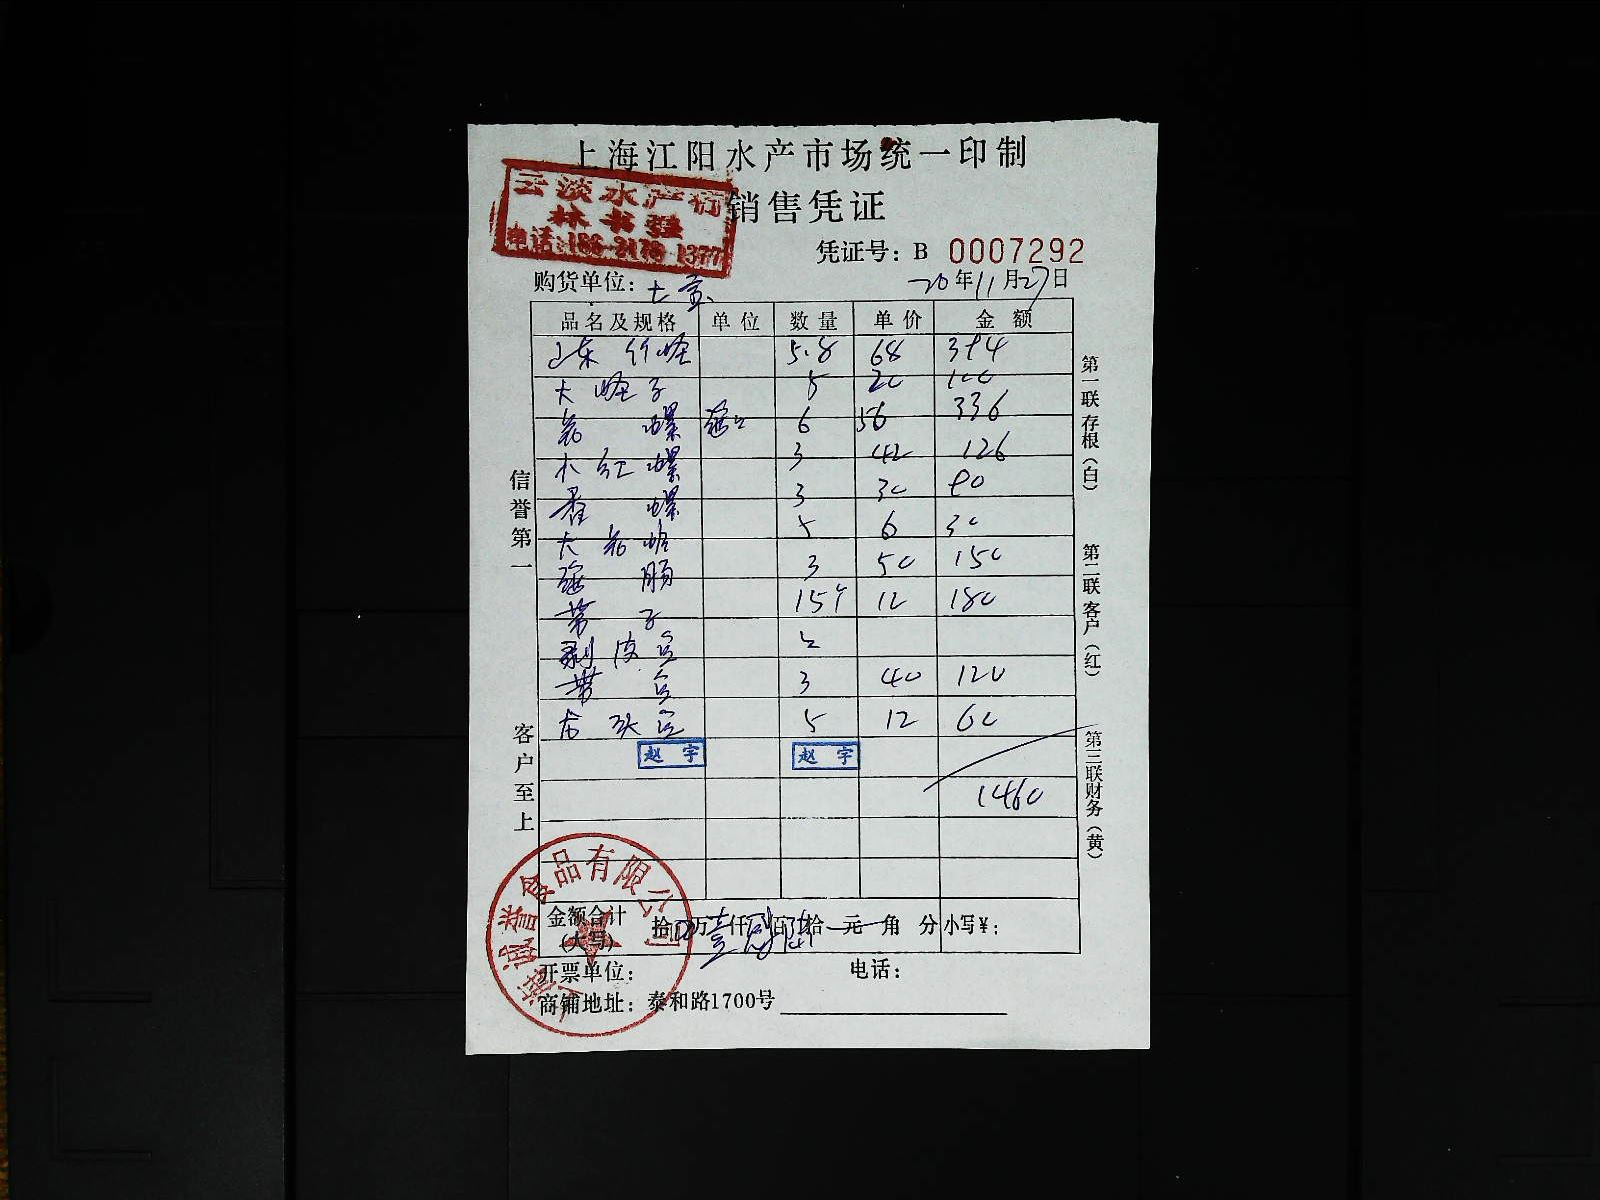 上海江阳水产市场统一印制
云淡水产行
林书强
电话:186-2178 1377
销售凭证
凭证号: B 0007292
购货单位:
20年11月27日
品名及规格 单位 数量 单价 金额
山东竹蛏 5.8 68 394
大蛏子 5 20 100
花螺 6 56 336
小红螺 3 42 126
香螺 3 30 90
大花蛤 5 6 30
海肠 3 50 150
带子 15个 12 180
剥皮鱼 2
带鱼 3 40 120
龙头鱼 5 12 60
赵宇 赵宇
1460
金额合计(大写) 拾 万壹仟 百陆拾 元 角 分 小写¥:
开票单位: 电话:
商铺地址: 泰和路1700号
信誉第一
客户至上
第一联 存根(白)
第二联 客户(红)
第三联 财务(黄)
上海诚誉食品有限公司